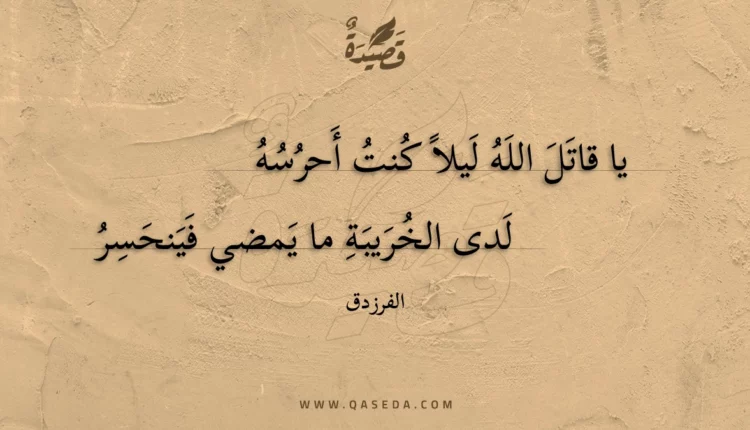 قَصِيدَةٌ
يا قاتَلَ اللَهُ لَيلاً كُنتُ أَحرُسُهُ
لَدى الخُرَيبَةِ ما يَمضي فَيَنحَسِرُ
الفرزدق
WWW.QASEDA.COM